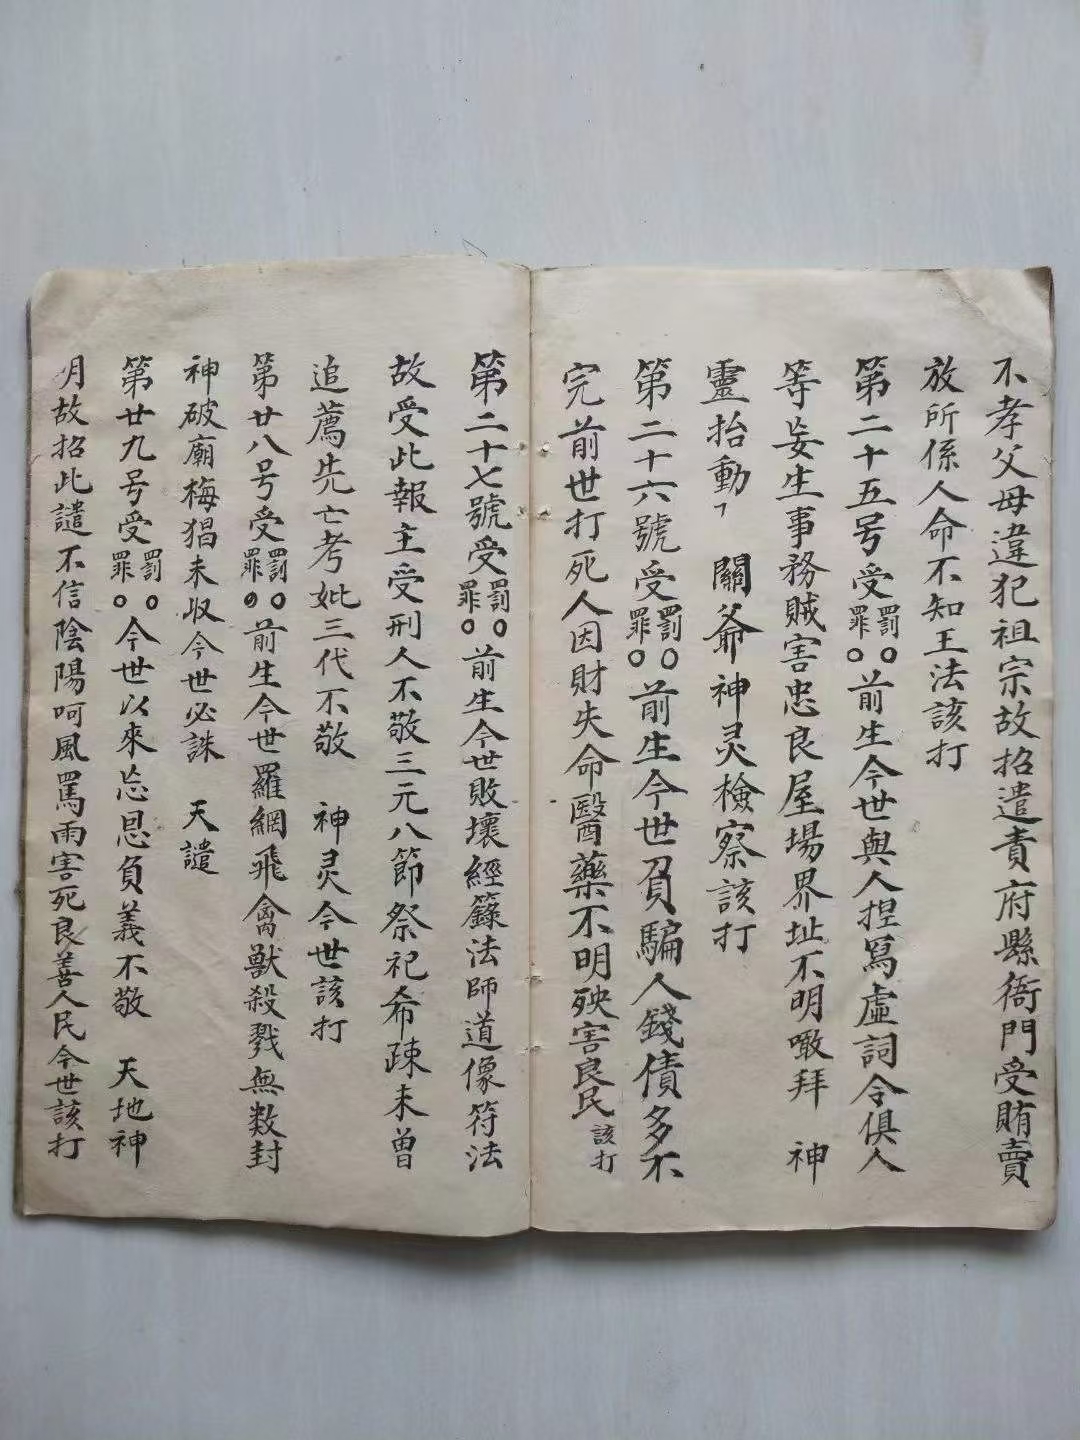 不孝父母違犯祖宗故招遣責府縣衙門受賄賣
放所係人命不知王法該打
第二十五号受罰罪○○前生今世與人捏寫虛詞令俱人
等妄生事務賊害忠良屋場界址不明噉拜 神
靈抬動 關爺神灵檢察該打
第二十六號受罰罪○○前生今世負騙人錢債多不
完前世打死人因財失命醫藥不明殃害良民該打
第二十七號受罰罪○○前生今世敗壞經籙法師道像符法
故受此報主受刑人不敬三元八節祭祀希疎未曾
追薦先亡考妣三代不敬 神灵今世該打
第廿八号受罰罪○○前生今世羅網飛禽獸殺戮無数封
神破廟梅猖未収今世必誅 天譴
第廿九号受罰罪○○今世以來忘恩負義不敬 天地神
明故招此譴不信陰陽呵風罵雨害死良善人民今世該打